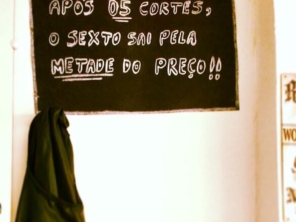 APÓS 05 CORTES,
O SEXTO SAI PELA
METADE DO PREÇO!!
WO